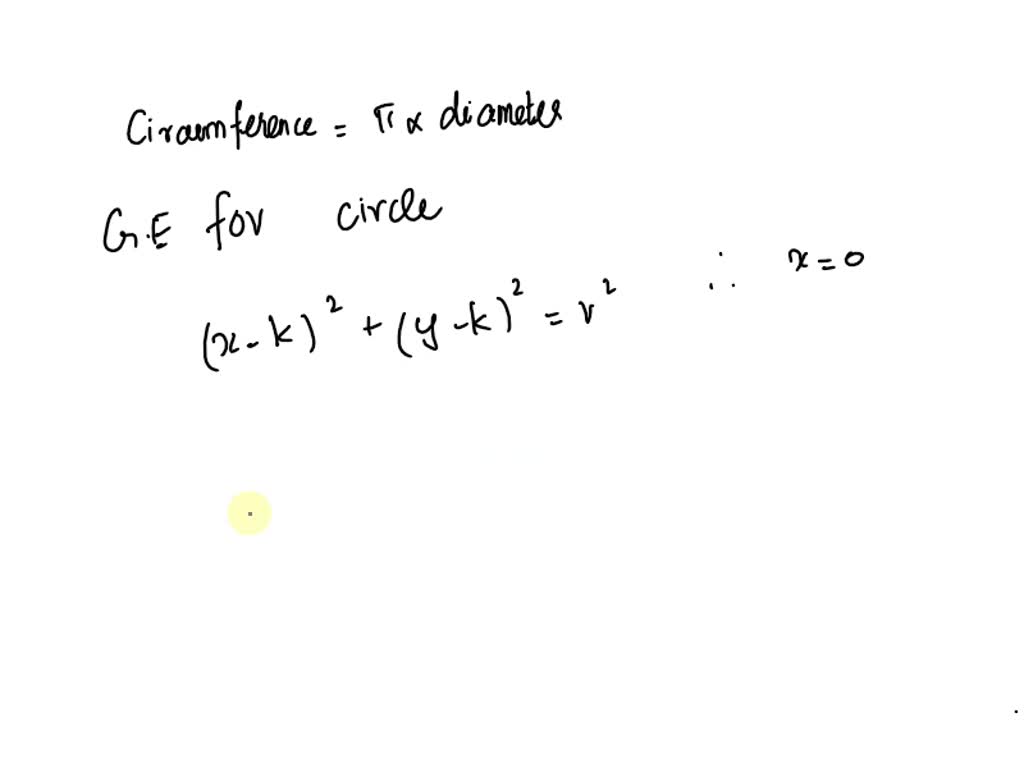 Circumference = π × diameter
G.E for circle
(x-k)² + (y-k)² = r² ∴ x = 0